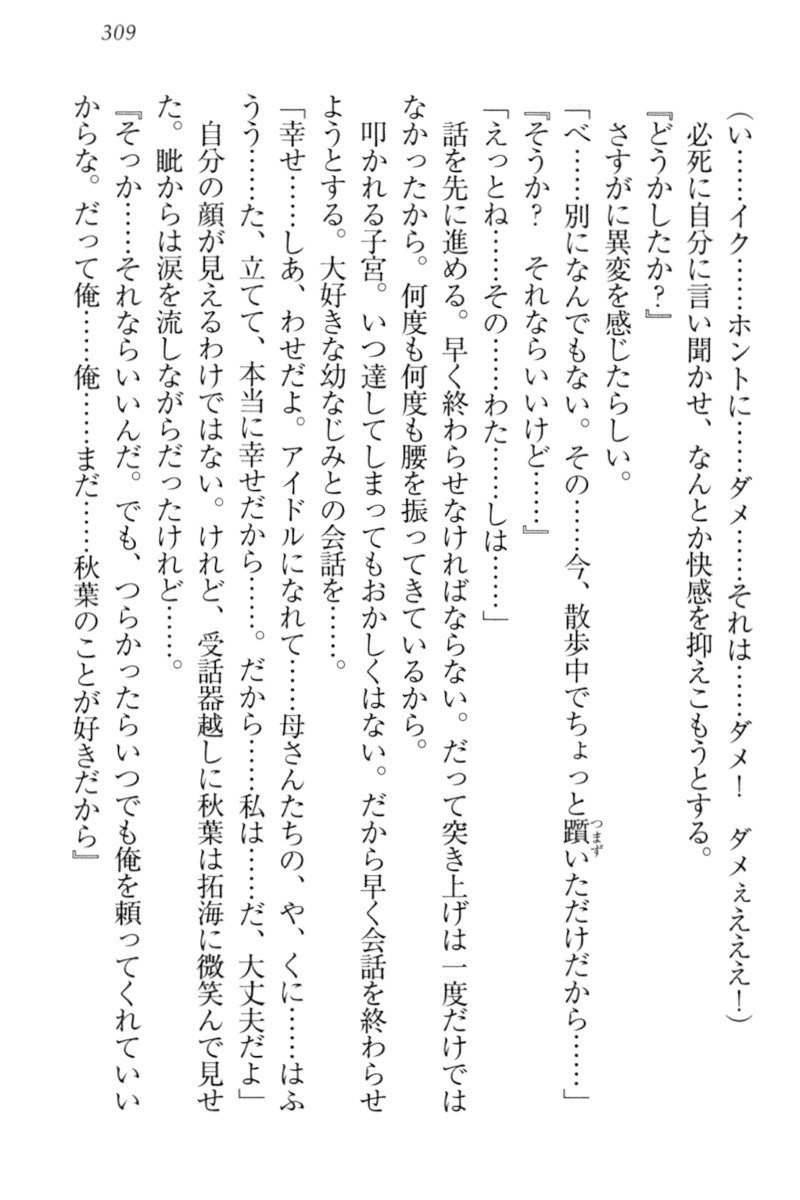 309
（い……イク……ホントに……ダメ……それは……ダメ！　ダメぇえええ！）
必死に自分に言い聞かせ、なんとか快感を抑えこもうとする。
『どうかしたか？』
さすがに異変を感じたらしい。
「べ……別になんでもない。その……今、散歩中でちょっと躓いただけだから……」
つまず
『そうか？　それならいいけど……』
「えっとね……その……わた……しは……」
話を先に進める。早く終わらせなければならない。だって突き上げは一度だけでは
なかったから。何度も何度も腰を振ってきているから。
叩かれる子宮。いつ達してしまってもおかしくはない。だから早く会話を終わらせ
ようとする。大好きな幼なじみとの会話を……。
「幸せ……しあ、わせだよ。アイドルになれて……母さんたちの、や、くに……はふ
うう……た、立てて、本当に幸せだから……。だから……私は……だ、大丈夫だよ」
自分の顔が見えるわけではない。けれど、受話器越しに秋葉は拓海に微笑んで見せ
た。眦からは涙を流しながらだったけれど……。
『そっか……それならいいんだ。でも、つらかったらいつでも俺を頼ってくれていい
からな。だって俺……俺……まだ……秋葉のことが好きだから』